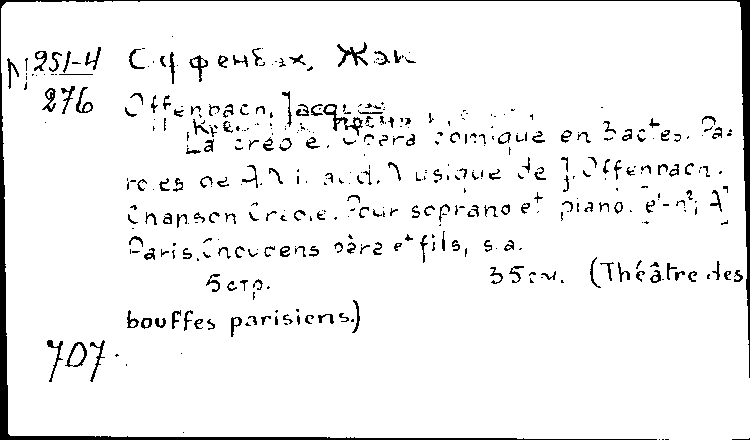 N 251-4 Оффенбах, Жак
276 Offenbach, Jacques
La créole. Opéra comique en 3 actes. Pa-
roles de A. Millaud. Musique de J. Offenbach.
Chanson Créole. Pour soprano et piano. [e'-h²; A]
Paris, Choudens père et fils, s.a.
5 стр. 35 см. (Théâtre des
bouffes parisiens.)
707.